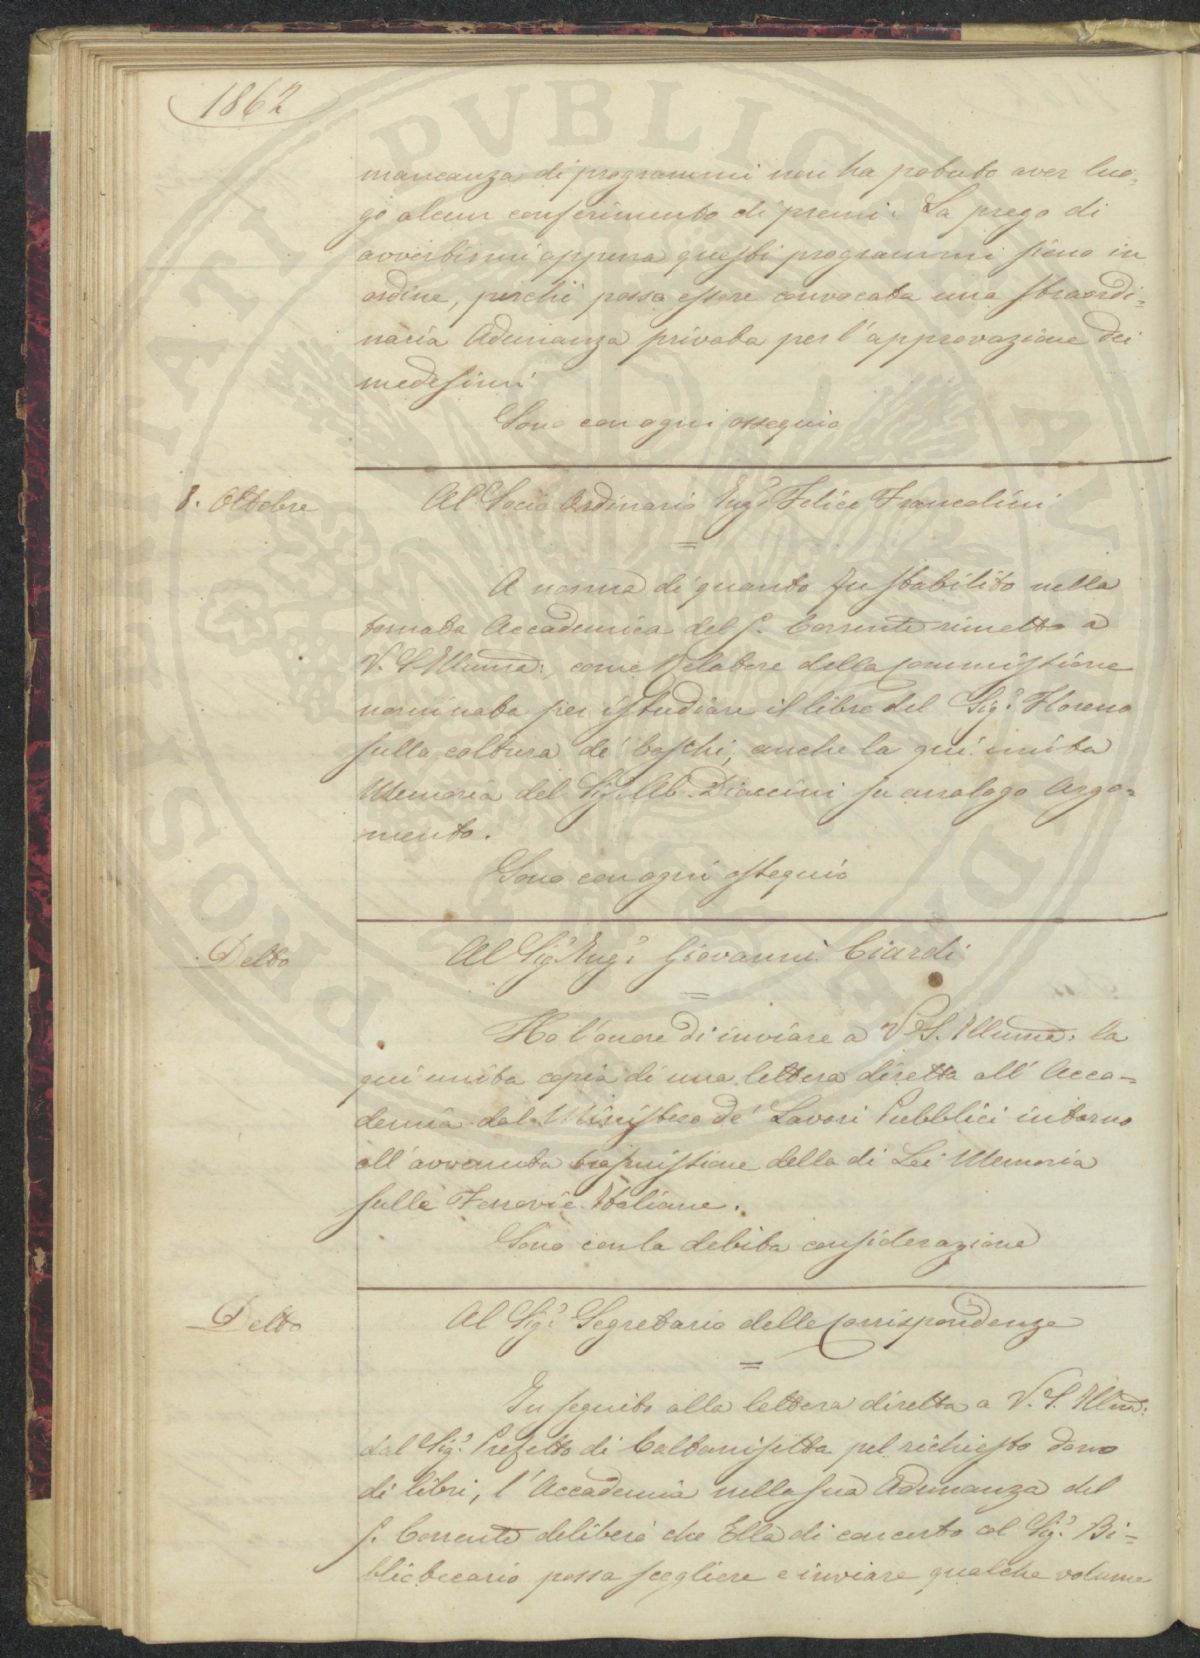 1862
mancanza di programmi non ha potuto aver luo-
go alcun conferimento di premi. La prego di
avvertirmi appena questi programmi sieno in
ordine, perchè possa essere convocata una straordi-
naria Adunanza privata per l'approvazione dei
medesimi
Sono con ogni ossequio
8. Ottobre
Al Socio Ordinario Ing.e Felice Francolini
=
A norma di quanto fu stabilito nella
tornata Accademica del 5. Corrente rimetto a
V. S. Illuma:, come Relatore della Commissione
nominata per istudiare il libro del Sig.e
sulla coltura de' boschi, anche la qui unita
Memoria del Sig.e Ab. Diaccini su analogo Argo=
mento.
Sono con ogni ossequio
Detto
Al Sig.e Ing.e Giovanni Ciardi
=
Ho l'onore di inviare a V. S. Illuma: la
qui unita copia di una lettera diretta all'Acca=
demia dal Ministero de' Lavori Pubblici intorno
all'avvenuta trasmissione della di Lei Memoria
sulle Ferrovie Italiane.
Sono con la debita considerazione
Detto
Al Sig.e Segretario delle Corrispondenze
=
In seguito alla lettera diretta a V. S. Illma:
dal Sig.e Prefetto di Caltanisetta pel richiesto dono
di libri, l'Accademia nella sua Adunanza del
5. Corrente deliberò che Ella di concerto col Sig.e Bi=
bliotecario possa scegliere e inviare qualche volume
PROSPERITATI PUBLICAE AUGENDAE